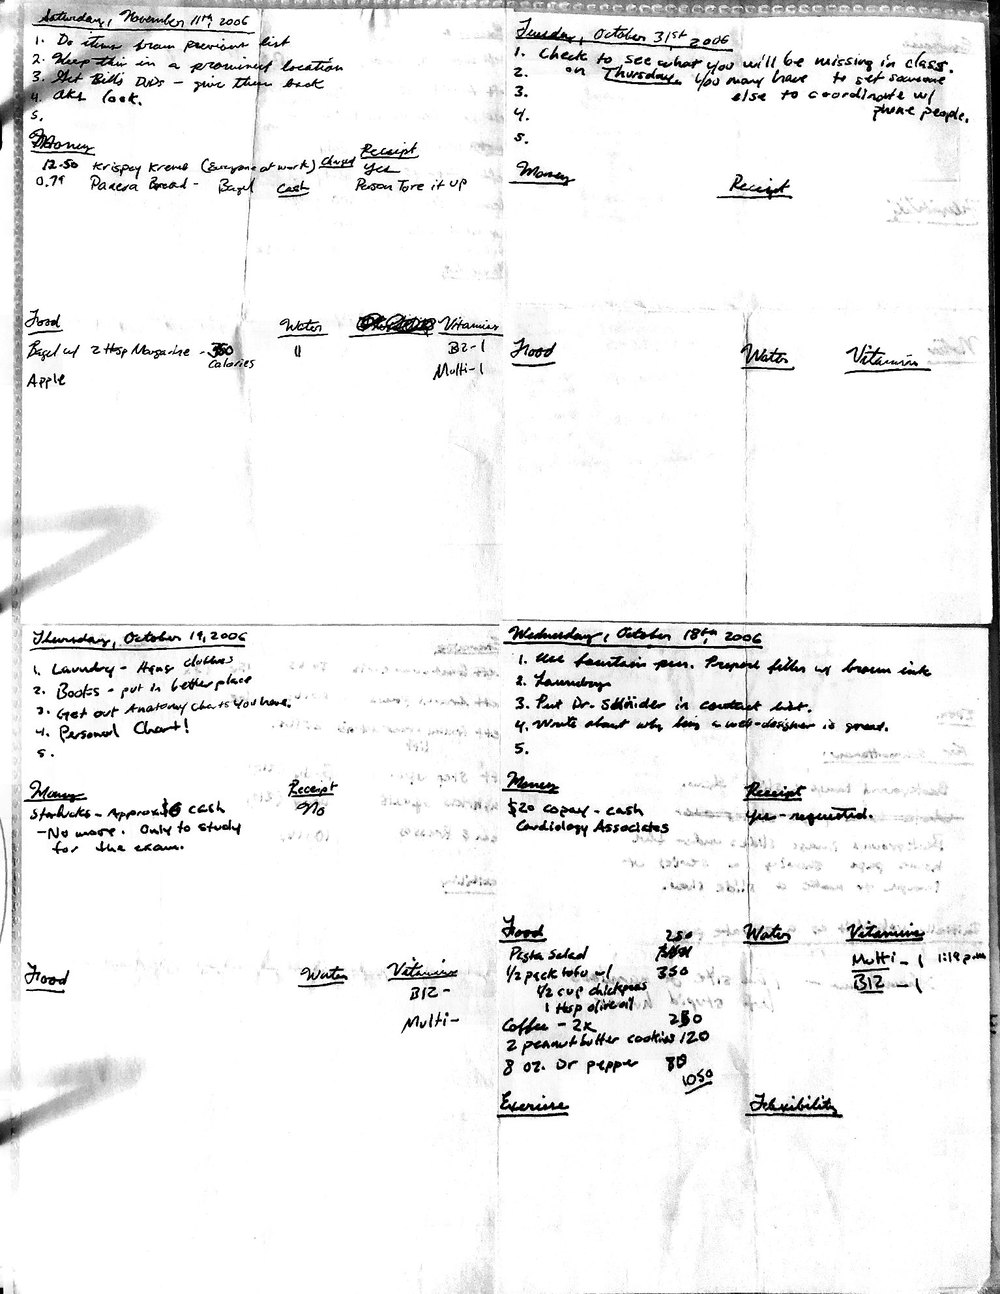 Saturday, November 11th, 2006
1. Do items from previous list
2. Keep this in a prominent location
3. Get Bill's DVDs - give them back
4. look.
5.
Money
Receipt
12.50 Krispey Kreme (Everyone at work) Charged Yes
0.79 Panera Bread - Bagel cash Person Tore it up
Food Water Vitamins
Bagel w/ 2 tbsp Margarine - 350 calories 11 B12-1
Apple Multi-1
Tuesday, October 31st 2006
1. Check to see what you will be missing in class.
2. on Thursday. You may have to get someone
3. else to coordinate w/
4. phone people.
5.
Money Receipt
Food Water Vitamins
Thursday, October 19, 2006
1. Laundry - Hang clothes
2. Books - put in better place
3. Get out Anatomy Charts you have.
4. Personal Chart!
5.
Money Receipt
Starbucks - Approx $6 cash No
- No more. Only to study
for the exam.
Food Water Vitamins
B12 -
Multi -
Wednesday, October 18th, 2006
1. Use fountain pen. Prepare filler w/ brown ink
2. Laundry
3. Put Dr. Schnider in contact list.
4. Write about why being a web-designer is great.
5.
Money Receipt
$20 copay - cash yes - requested.
Cardiology Associates
Food Water Vitamins
Pasta Salad 250 Multi - 1 1:19 p.m
1/2 pack tofu w/ 350 B12 - 1
1/2 cup chickpeas
1 tbsp olive oil
Coffee - 2x 250
2 peanut butter cookies 120
8 oz. Dr pepper 80
1050
Exercise Flexibility